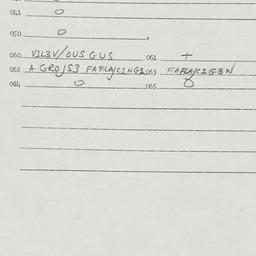 041 0
050 0
060 V1L3V/OUS GUS 061 +
062 A GRO/S3 FAFLA/C1NG2 063 FAFLA/C1G3N
064 0 065 0